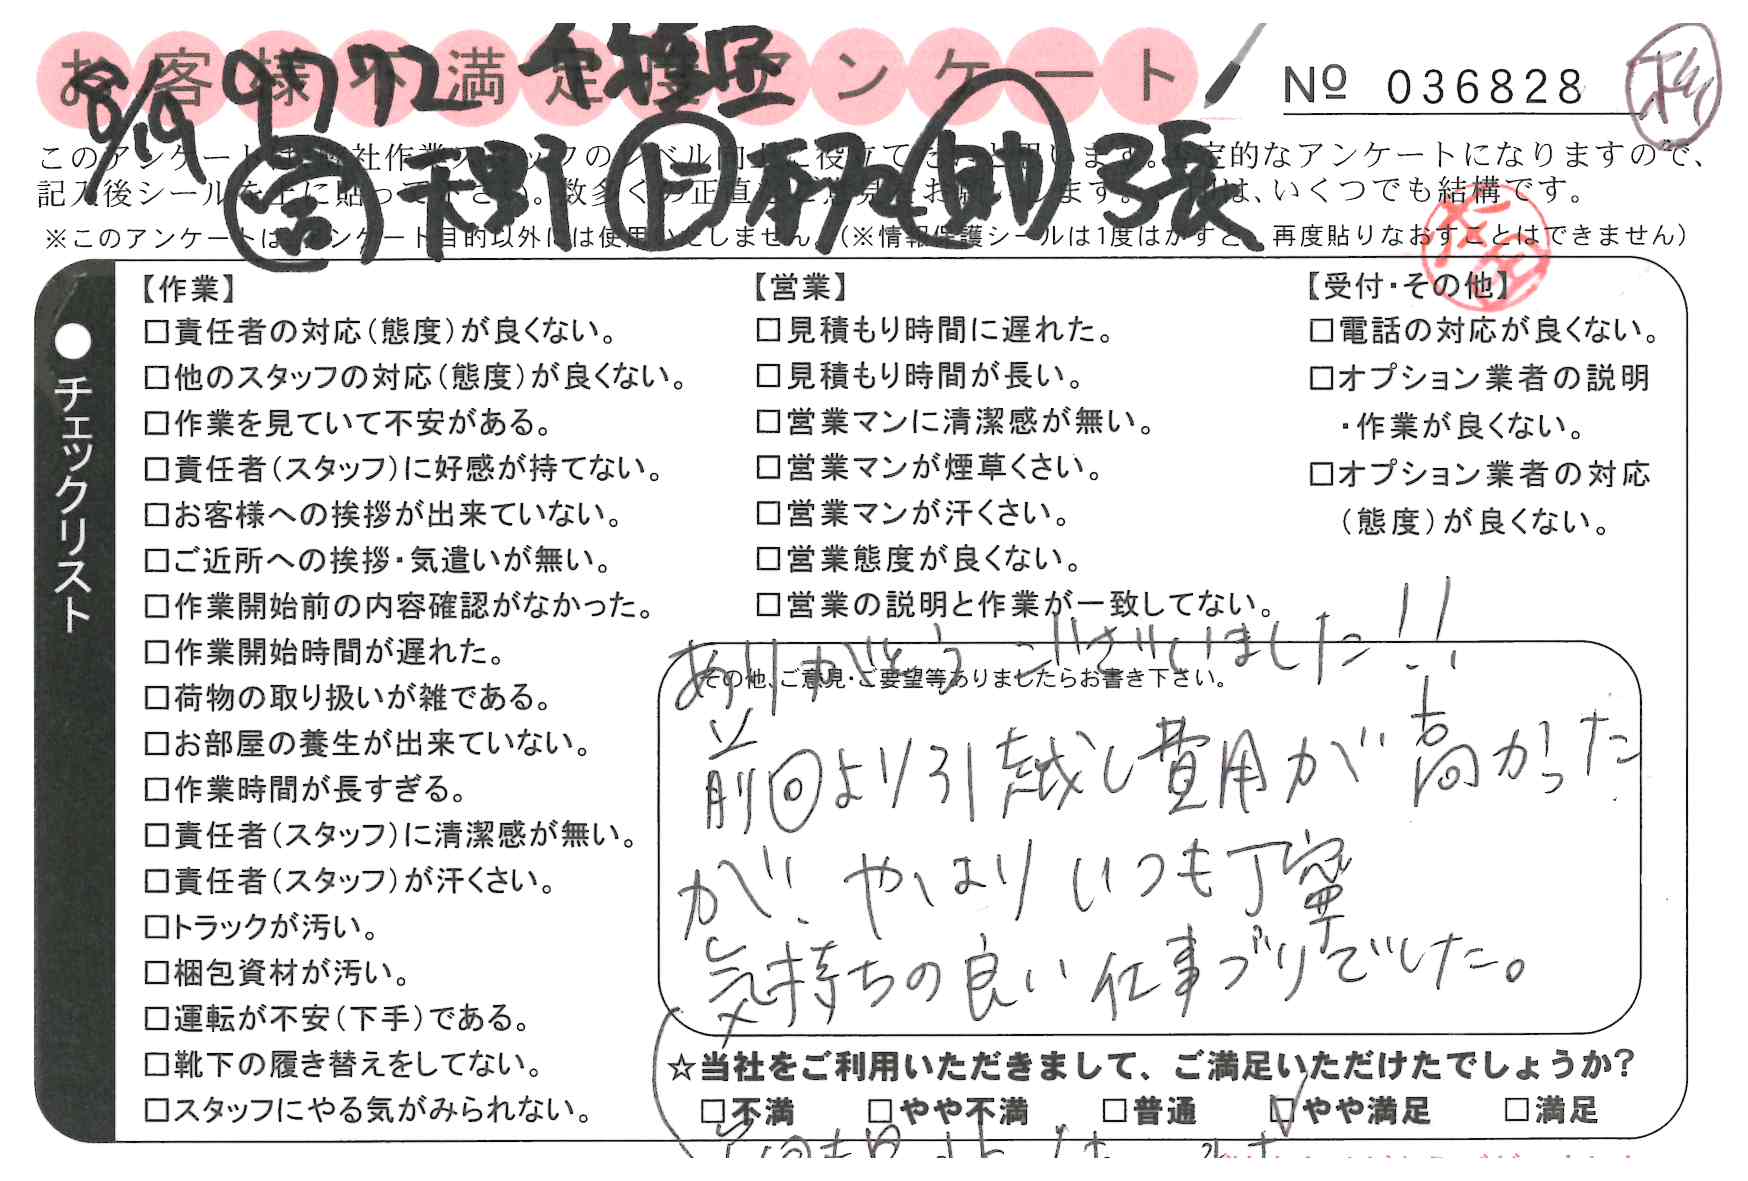 お客様不満足度アンケート
№ 036828
8/19 9772
このアンケートは、弊社作業スタッフのレベル向上に役立てたいと思います。定的なアンケートになりますので、
記入後シールを上に貼って下さい。数多くの正直なご意見をお願いします。は、いくつでも結構です。
※このアンケートは、アンケート目的以外には使用いたしません。(※情報保護シールは1度はがすと、再度貼りなおすことはできません)
●チェックリスト
【作業】
□責任者の対応(態度)が良くない。
□他のスタッフの対応(態度)が良くない。
□作業を見ていて不安がある。
□責任者(スタッフ)に好感が持てない。
□お客様への挨拶が出来ていない。
□ご近所への挨拶・気遣いが無い。
□作業開始前の内容確認がなかった。
□作業開始時間が遅れた。
□荷物の取り扱いが雑である。
□お部屋の養生が出来ていない。
□作業時間が長すぎる。
□責任者(スタッフ)に清潔感が無い。
□責任者(スタッフ)が汗くさい。
□トラックが汚い。
□梱包資材が汚い。
□運転が不安(下手)である。
□靴下の履き替えをしてない。
□スタッフにやる気がみられない。
【営業】
□見積もり時間に遅れた。
□見積もり時間が長い。
□営業マンに清潔感が無い。
□営業マンが煙草くさい。
□営業マンが汗くさい。
□営業態度が良くない。
□営業の説明と作業が一致してない。
【受付・その他】
□電話の対応が良くない。
□オプション業者の説明
・作業が良くない。
□オプション業者の対応
(態度)が良くない。
その他、ご意見・ご要望等ありましたらお書き下さい。
ありがとうございました!!
前回より引越し費用が高かった
が、やはりいつも丁寧
気持ちの良い仕事ブリでした。
☆当社をご利用いただきまして、ご満足いただけたでしょうか?
□不満 □やや不満 □普通 ☑やや満足 □満足